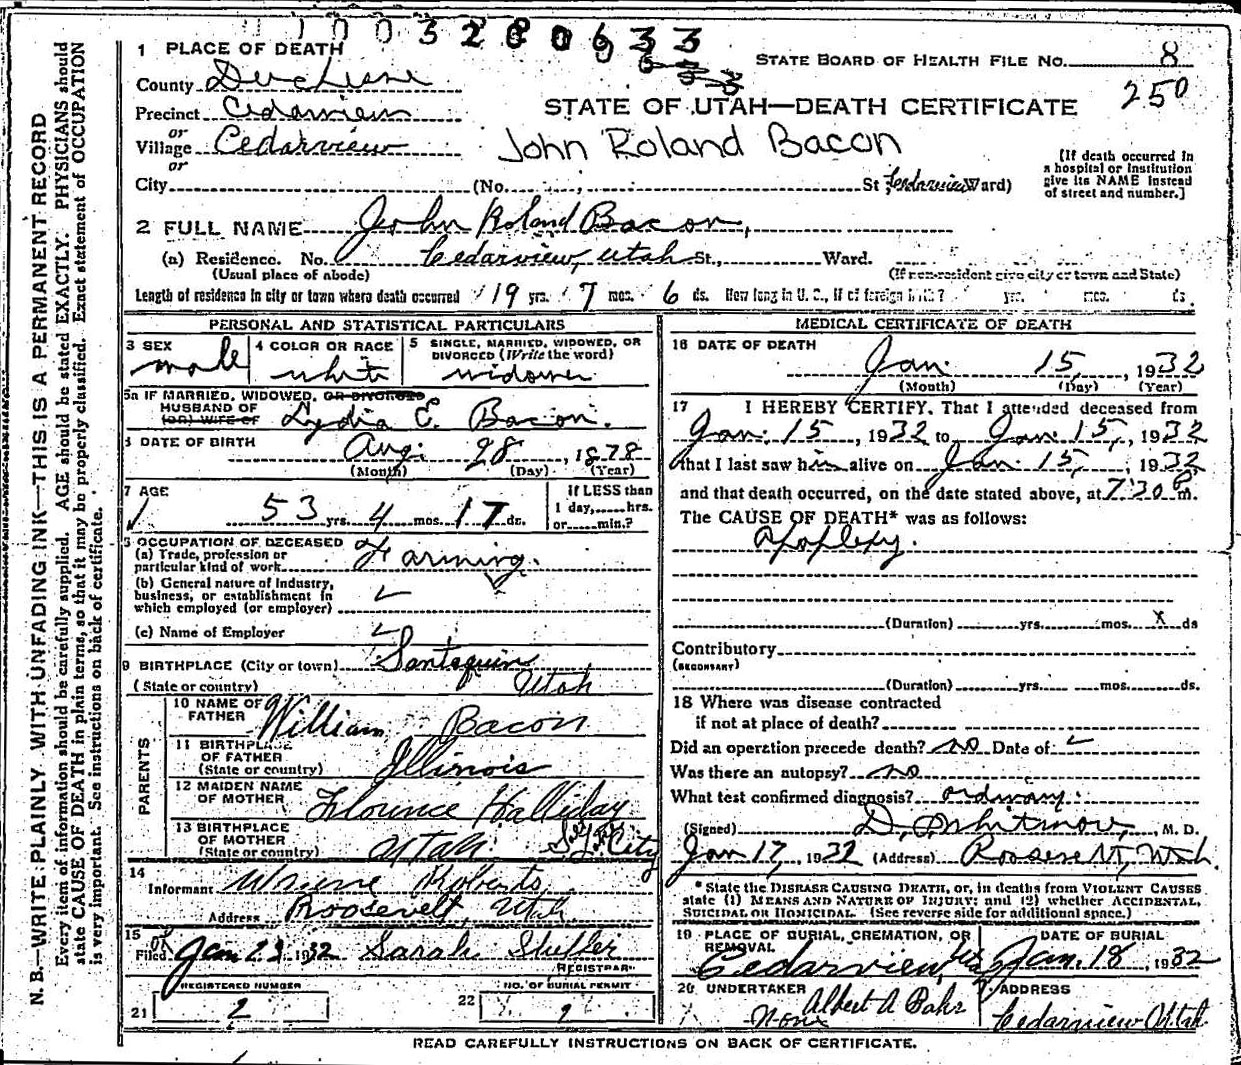 1003280633
1 PLACE OF DEATH
STATE BOARD OF HEALTH FILE NO. 8
County Duchesne
250
Precinct Cedarview
STATE OF UTAH—DEATH CERTIFICATE
or
Village Cedarview
John Roland Bacon
or
City (No. St Cedarview Ward)
(If death occurred in a hospital or institution give its NAME instead of street and number.]
2 FULL NAME John Roland Bacon,
(a) Residence. No. Cedarview, Utah St., Ward.
(Usual place of abode)
(If non-resident give city or town and State)
Length of residence in city or town where death occurred 19 yrs. 7 mos. 6 ds. How long in U. S., if of foreign birth? yrs. mos. ds.
PERSONAL AND STATISTICAL PARTICULARS
3 SEX
male
4 COLOR OR RACE
white
5 SINGLE, MARRIED, WIDOWED, OR DIVORCED (Write the word)
widower
5a IF MARRIED, WIDOWED, OR DIVORCED
HUSBAND OF
(or) WIFE OF
Lydia E. Bacon.
6 DATE OF BIRTH
Aug. 28, 1878
(Month) (Day) (Year)
7 AGE
53 yrs. 4 mos. 17 ds.
If LESS than
1 day, hrs.
or min.?
OCCUPATION OF DECEASED
(a) Trade, profession or
particular kind of work Farming.
(b) General nature of industry,
business, or establishment in
which employed (or employer)
(c) Name of Employer
9 BIRTHPLACE (City or town) Santaquin
(State or country) Utah
PARENTS
10 NAME OF
FATHER William Bacon
11 BIRTHPLACE
OF FATHER
(State or country) Illinois
12 MAIDEN NAME
OF MOTHER Florence Halliday
13 BIRTHPLACE
OF MOTHER
(State or country) Utah. S. L. City
14
Informant Roberts
Address Roosevelt, Utah
15
Filed Jan 23 1932 Sarah
REGISTRAR
REGISTERED NUMBER
21 2
NO. OF BURIAL PERMIT
22
MEDICAL CERTIFICATE OF DEATH
16 DATE OF DEATH
Jan. 15, 1932
(Month) (Day) (Year)
17 I HEREBY CERTIFY, That I attended deceased from
Jan. 15, 1932 to Jan. 15, 1932
that I last saw him alive on Jan. 15, 1932
and that death occurred, on the date stated above, at 7:30 P m.
The CAUSE OF DEATH* was as follows:
Apoplexy.
(Duration) yrs. mos. x ds
Contributory
(SECONDARY)
(Duration) yrs. mos. ds.
18 Where was disease contracted
if not at place of death?
Did an operation precede death? no Date of
Was there an autopsy? no
What test confirmed diagnosis? ordinary.
(Signed) Whitmore, M. D.
Jan 17, 1932 (Address) Roosevelt, Utah.
* State the DISEASE CAUSING DEATH, or, in deaths from VIOLENT CAUSES
state (1) MEANS AND NATURE OF INJURY; and (2) whether ACCIDENTAL,
SUICIDAL OR HOMICIDAL. (See reverse side for additional space.)
19 PLACE OF BURIAL, CREMATION, OR
REMOVAL
Cedarview
DATE OF BURIAL
Jan. 18, 1932
20 UNDERTAKER
none
Albert A
ADDRESS
Cedarview Utah
READ CAREFULLY INSTRUCTIONS ON BACK OF CERTIFICATE.
N. B.—WRITE PLAINLY, WITH UNFADING INK—THIS IS A PERMANENT RECORD
Every item of information should be carefully supplied. AGE should be stated EXACTLY. PHYSICIANS should
state CAUSE OF DEATH in plain terms, so that it may be properly classified. Exact statement of OCCUPATION
is very important. See instructions on back of certificate.